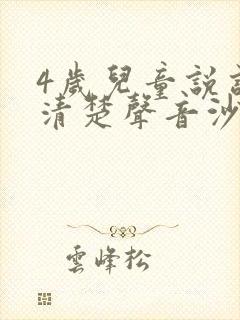 4歲兒童說
清楚聲音沙
雲峰松